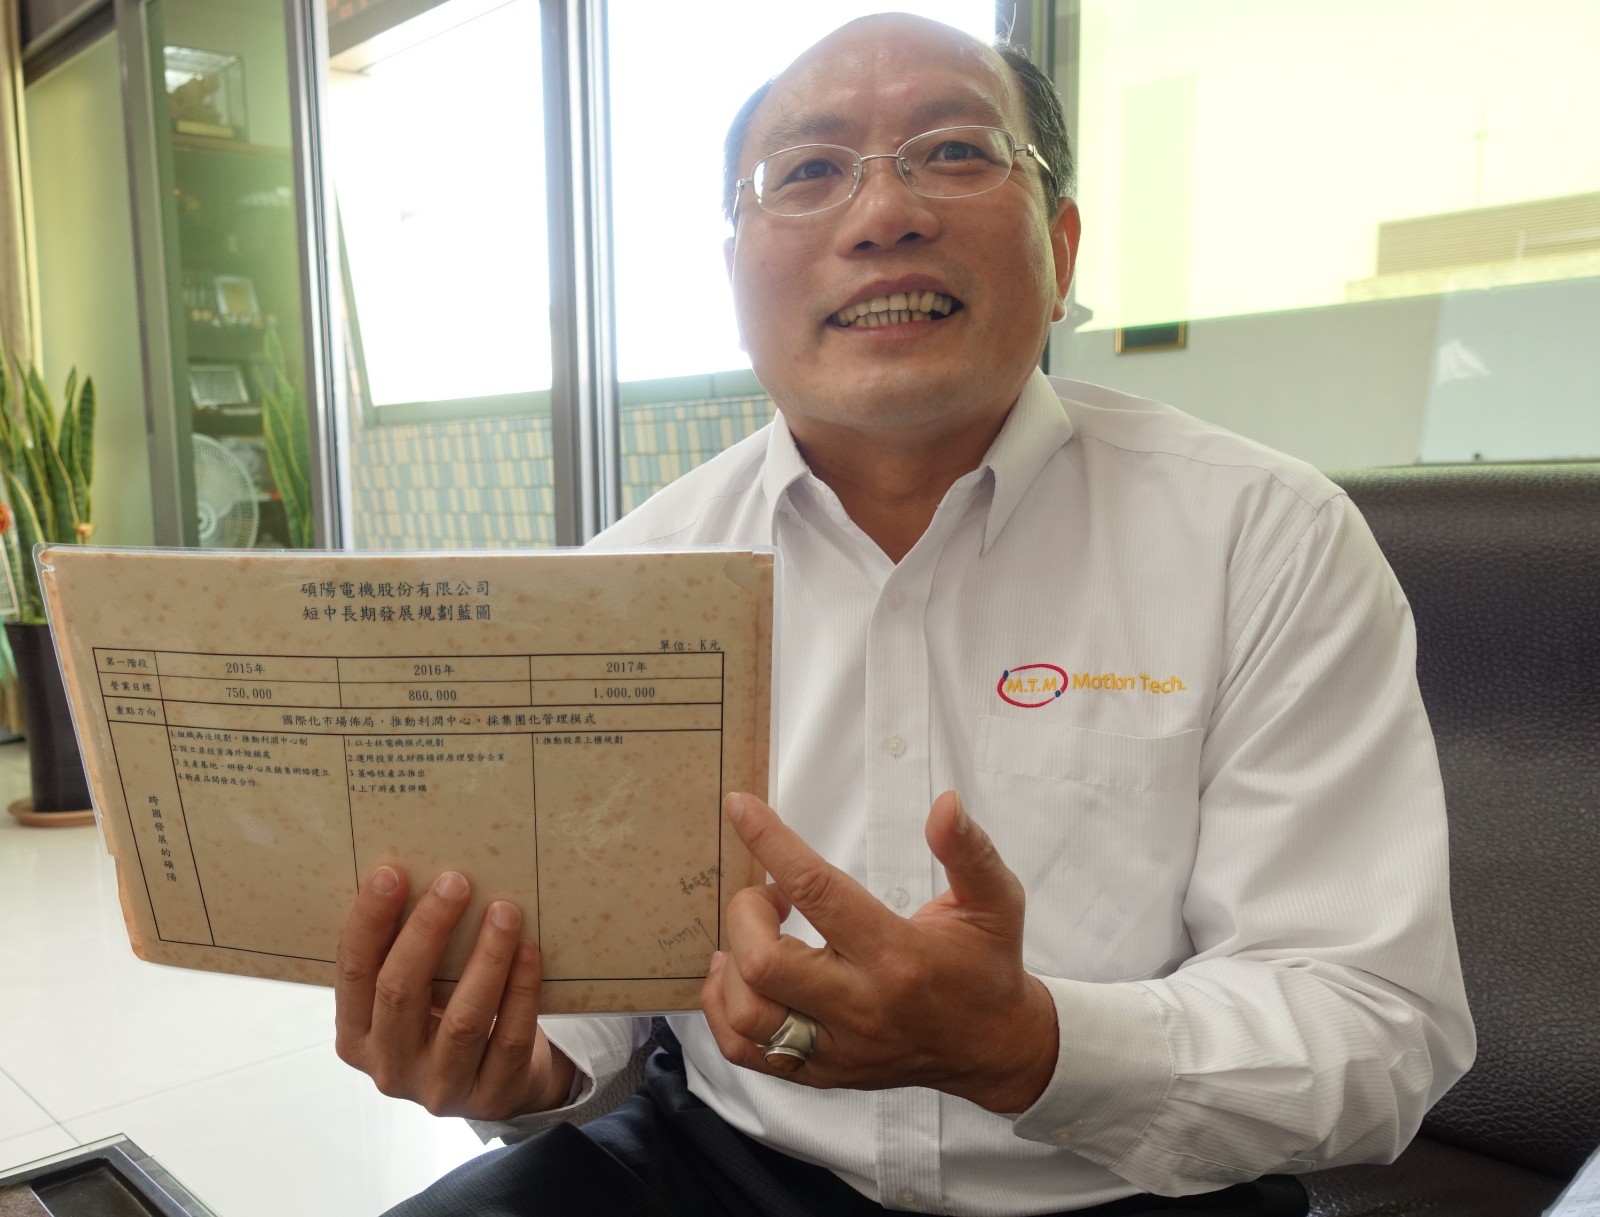 碩陽電機股份有限公司
短中長期發展規劃藍圖
單位: K元
第一階段 2015年 2016年 2017年
營業目標 750,000 860,000 1,000,000
重點方向 國際化市場佈局，推動利潤中心，採集團化管理模式
跨國發展的碩陽
1.組織再造規劃，推動利潤中心制
2.設立並投資海外經銷處
3.生產基地、研發中心及銷售網絡建立
4.新產品開發及合作
1.以士林電機模式規劃
2.運用投資及財務槓桿原理整合企業
3.策略性產品推出
4.上下游產業併購
1.推動股票上櫃規劃
M.T.M. Motion Tech.